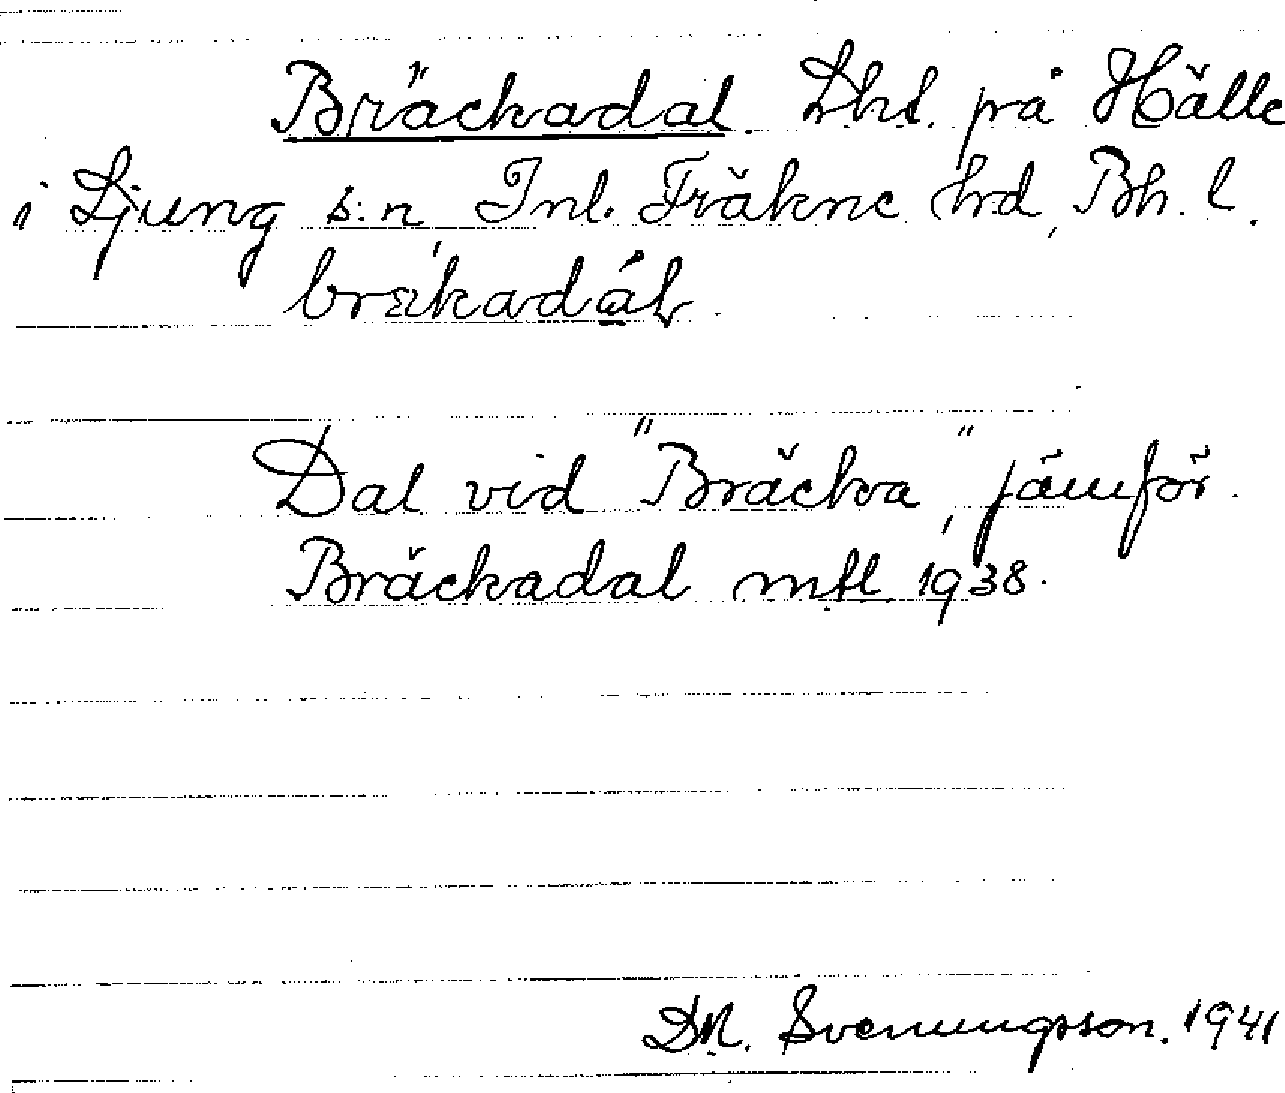 Bräckadal. Lht. på Hälle
i Ljung s:n, Inl. Fräkne hd, Bh. l.
brækadáḷ.
Dal vid "Bräcka", jämför
Bräckadal mtl 1938.
D.N. Svenungsson. 1941